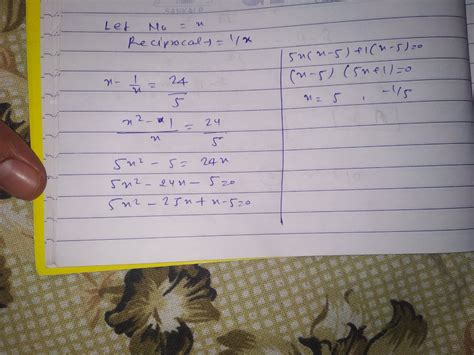 Let No = x
Reciprocal = 1/x
x - 1/x = 24/5
x² - 1/x = 24/5
5x² - 5 = 24x
5x² - 24x - 5 = 0
5x² - 25x + x - 5 = 0
5x(x-5) + 1(x-5) = 0
(x-5) (5x+1) = 0
x = 5 , -1/5